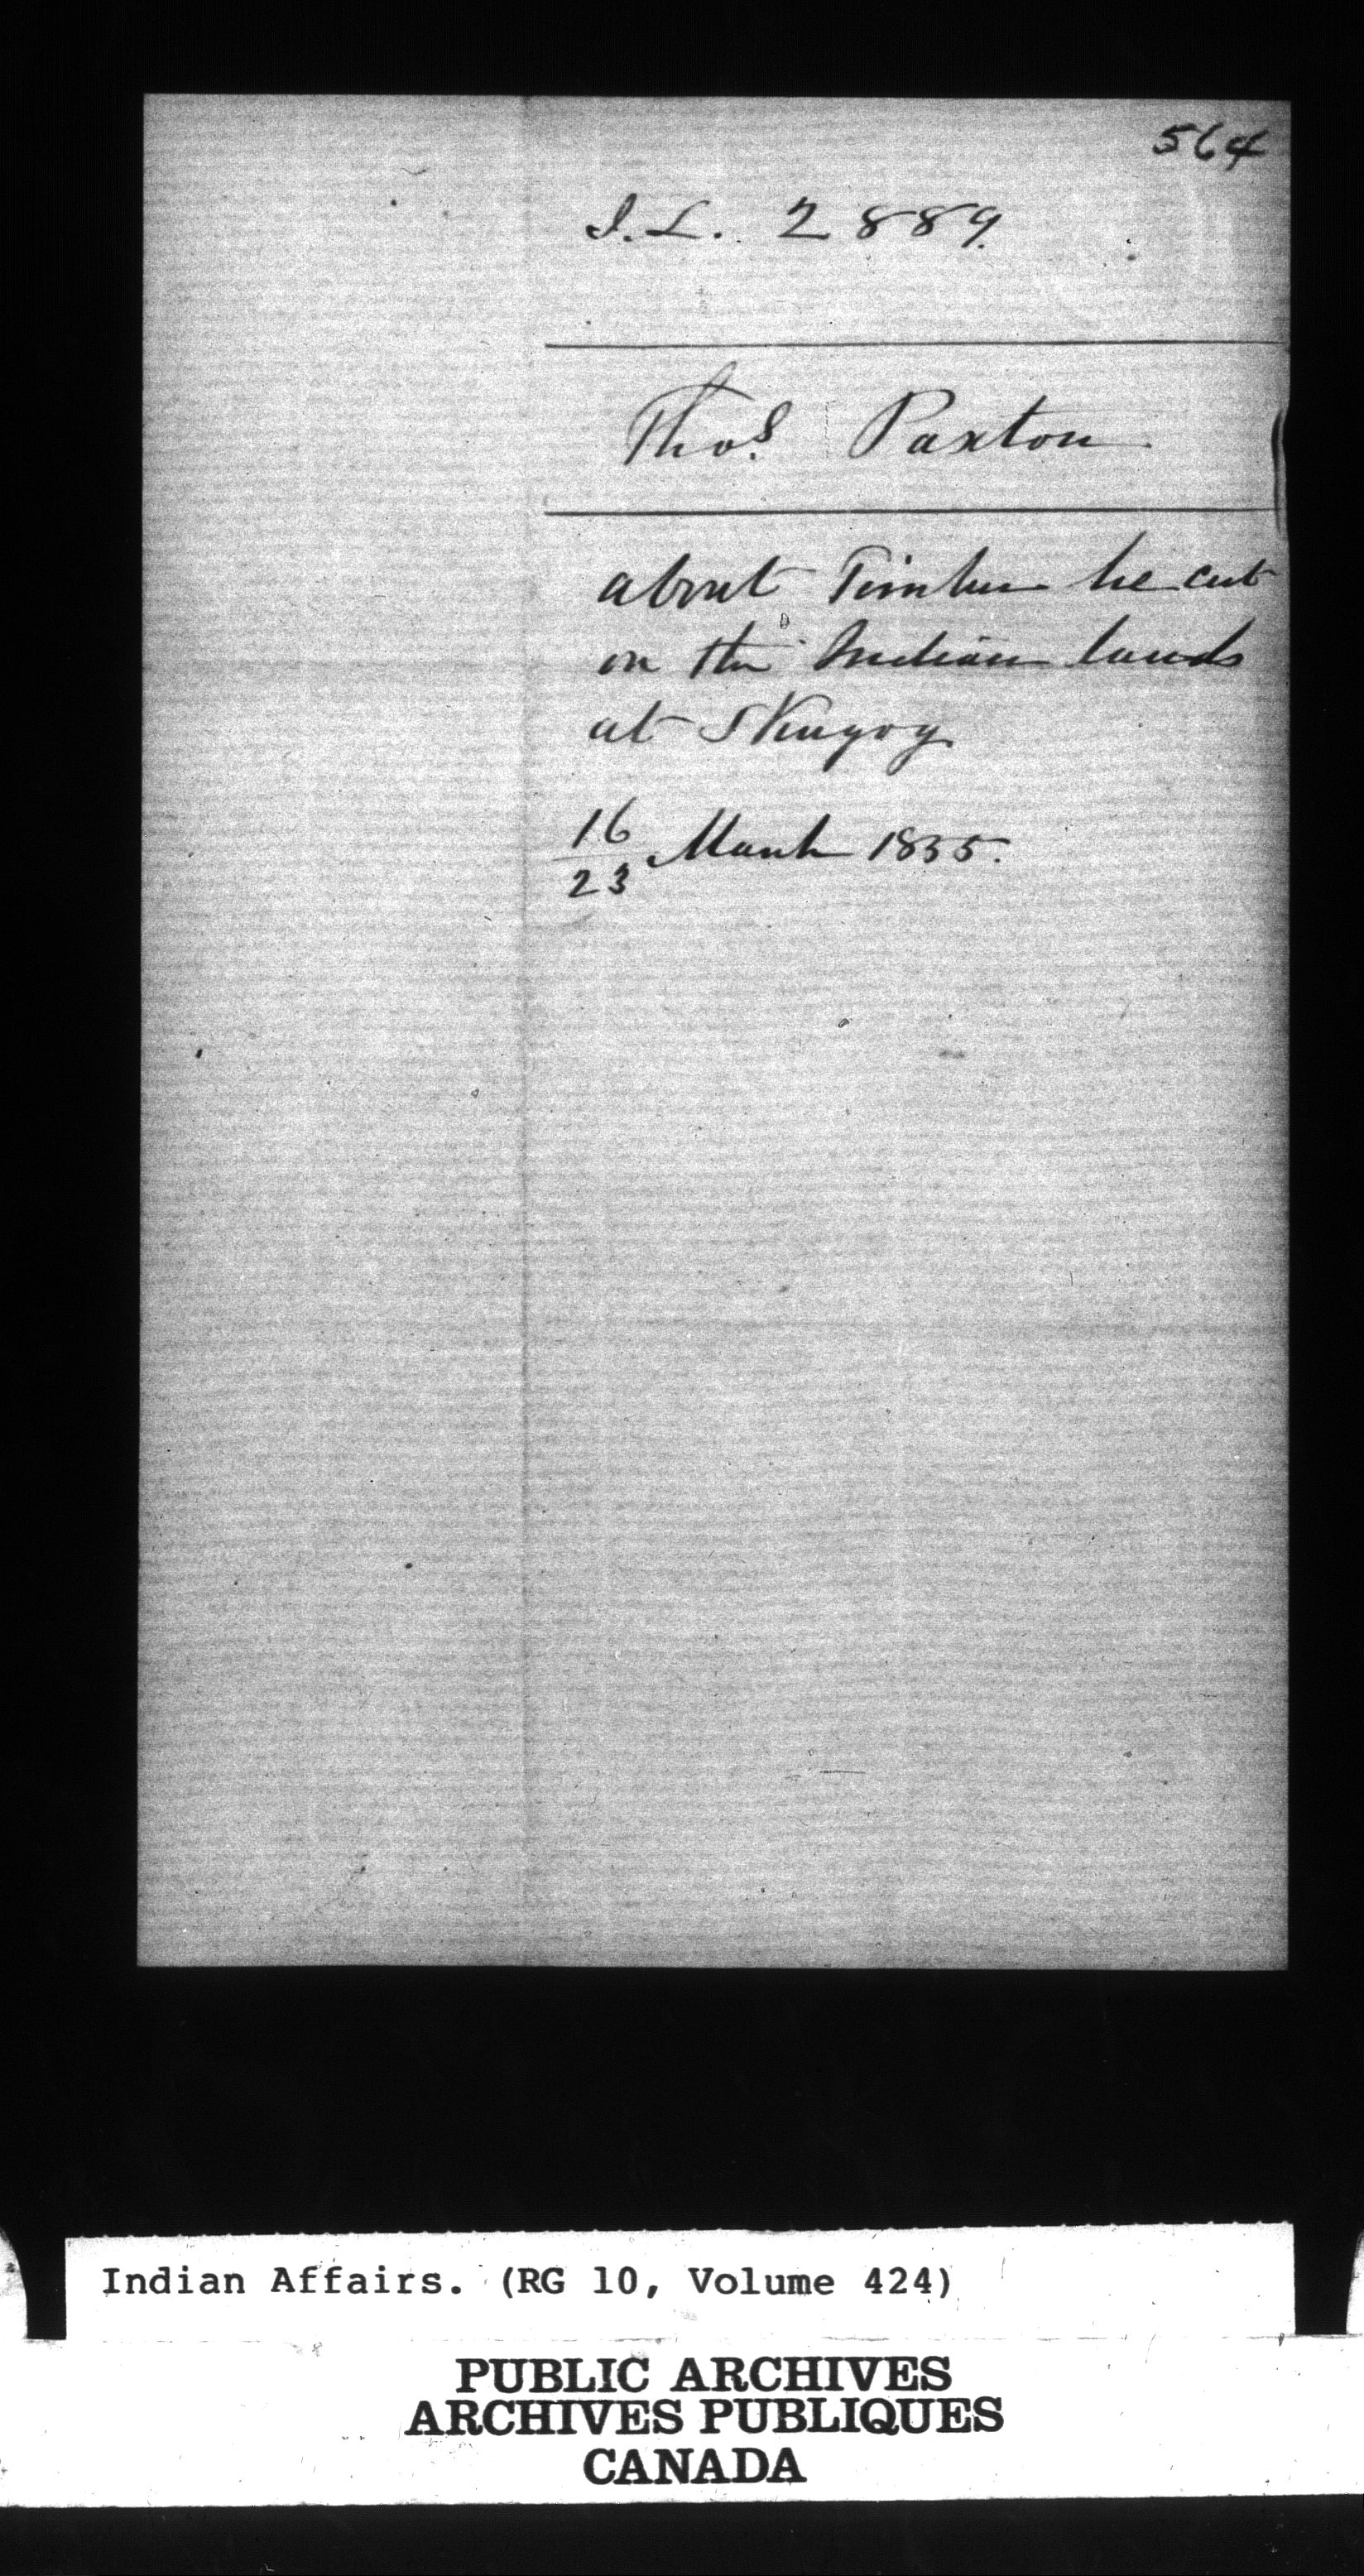 564
I.L. 2889.
Thos. Paxton
about Timber he cut
on the Indian lands
at Skugog
16
23 March 1835.
Indian Affairs. (RG 10, Volume 424)
PUBLIC ARCHIVES
ARCHIVES PUBLIQUES
CANADA